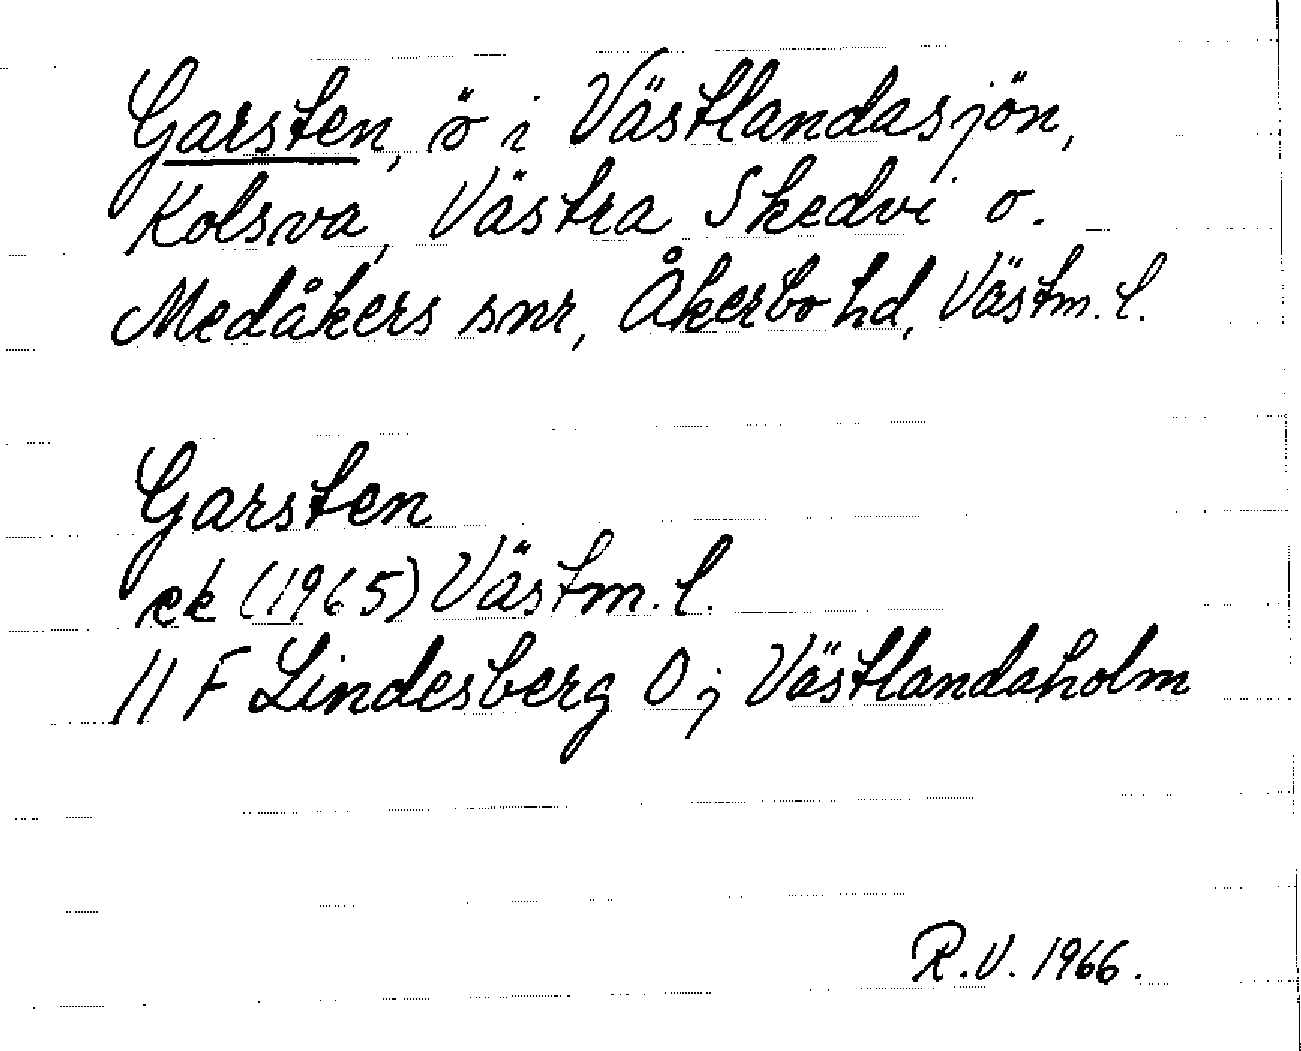 Garsten, ö i Västlandasjön,
Kolsva, Västra Skedvi o.
Medåkers snr, Åkerbo hd, Västm. l.
Garsten
ek (1965) Västm. l.
11 F Lindesberg 0 j Västlandaholm
R.V. 1966.